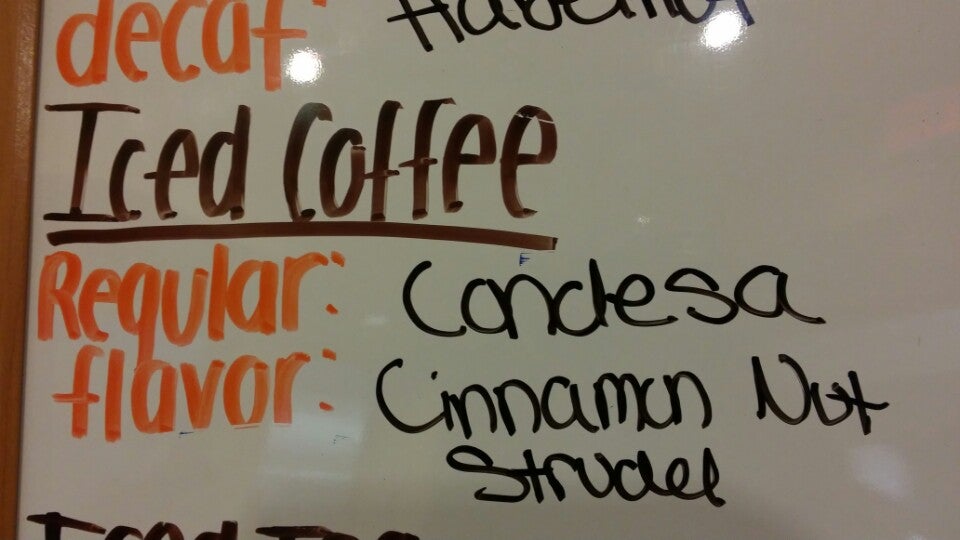 decaf:
Iced Coffee
Regular: Condesa
flavor: Cinnamon Nut
Strudel
Iced Tea